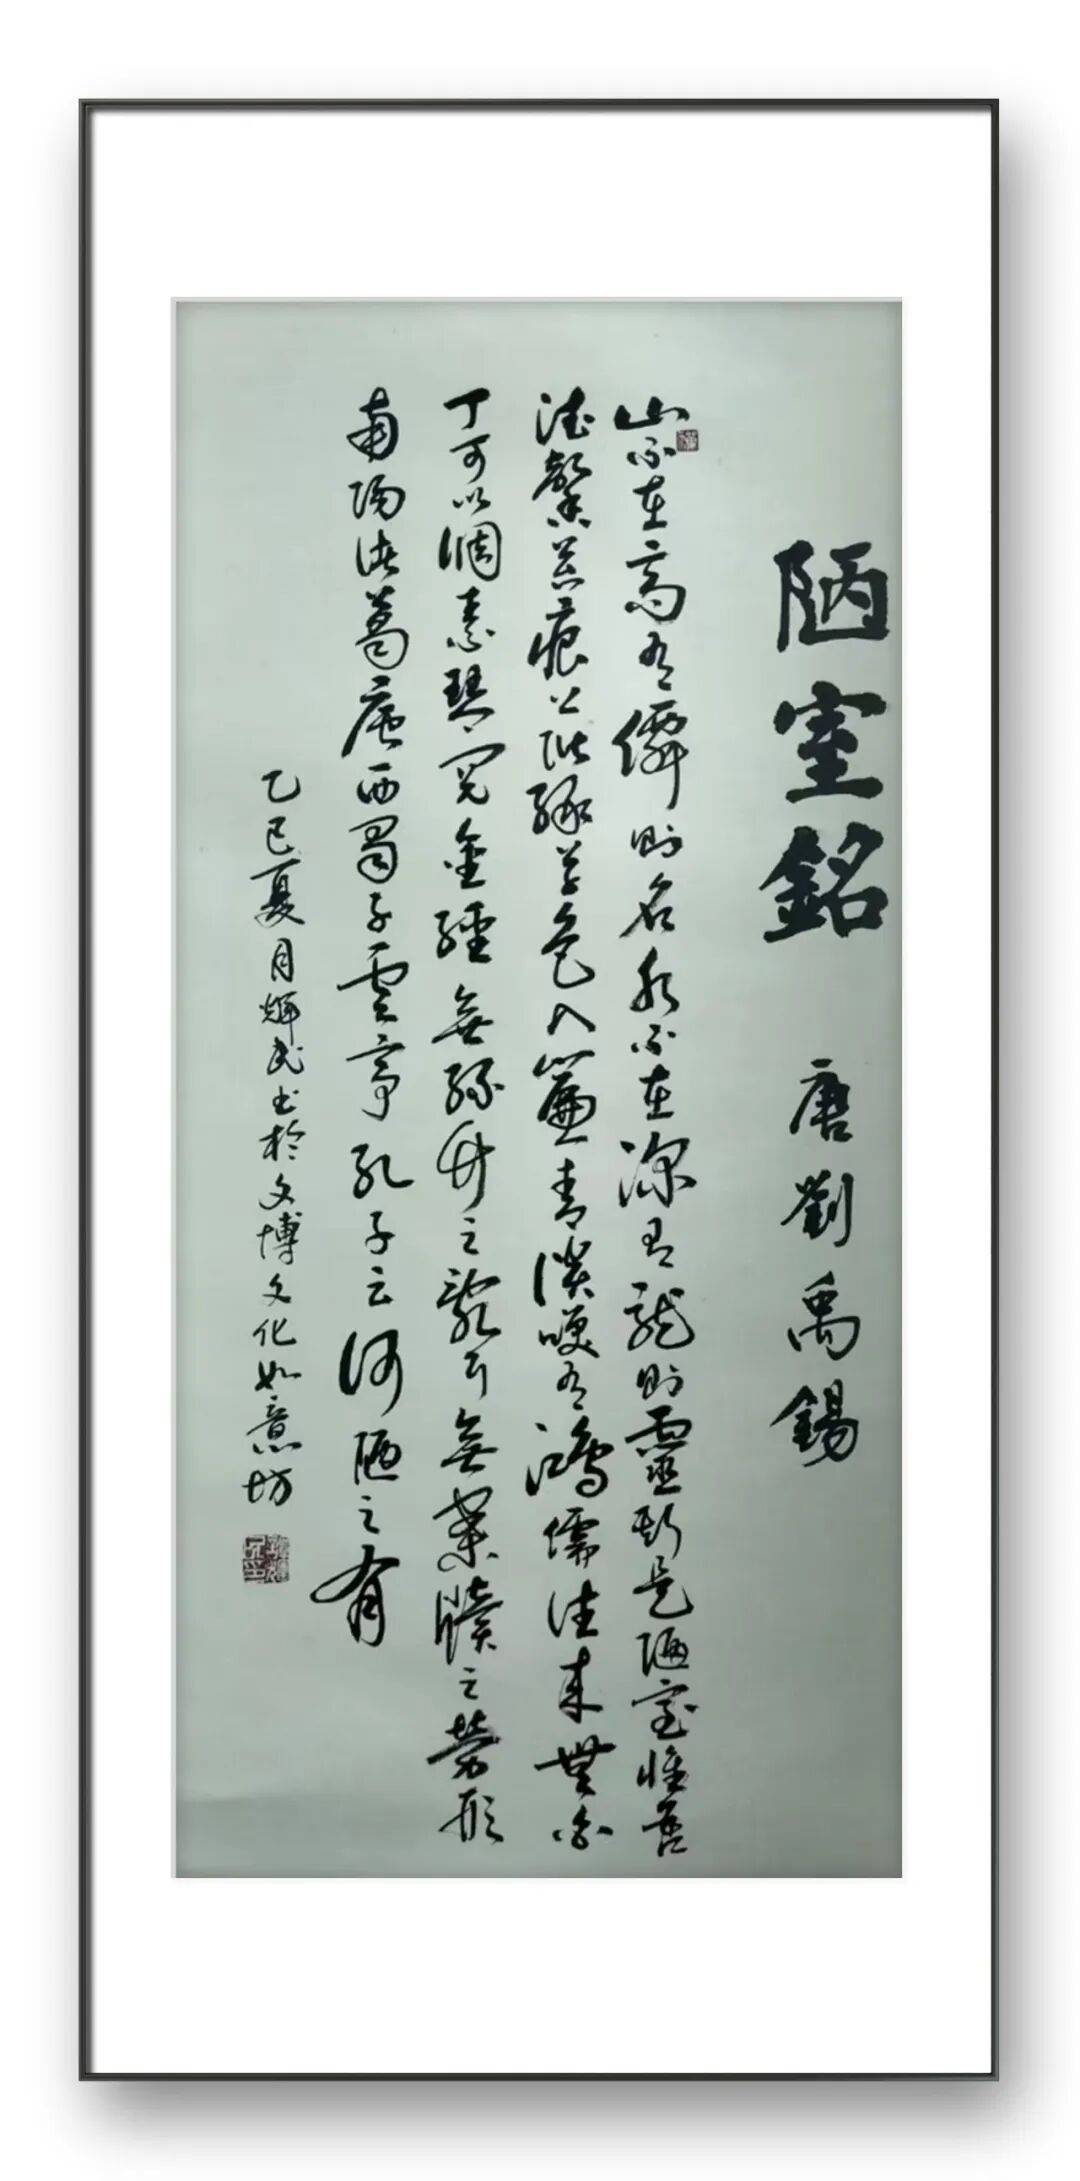 陋室銘
唐劉禹錫
山不在高有僊則名水不在深有龍則靈斯是陋室惟吾
德馨苔痕上階緑草色入簾青談咲有鴻儒往來無白
丁可以調素琴閱金經無絲竹之亂耳無案牘之勞形
南陽諸葛廬西蜀子雲亭孔子云何陋之有
乙巳夏月輝民书於文博文化如意坊